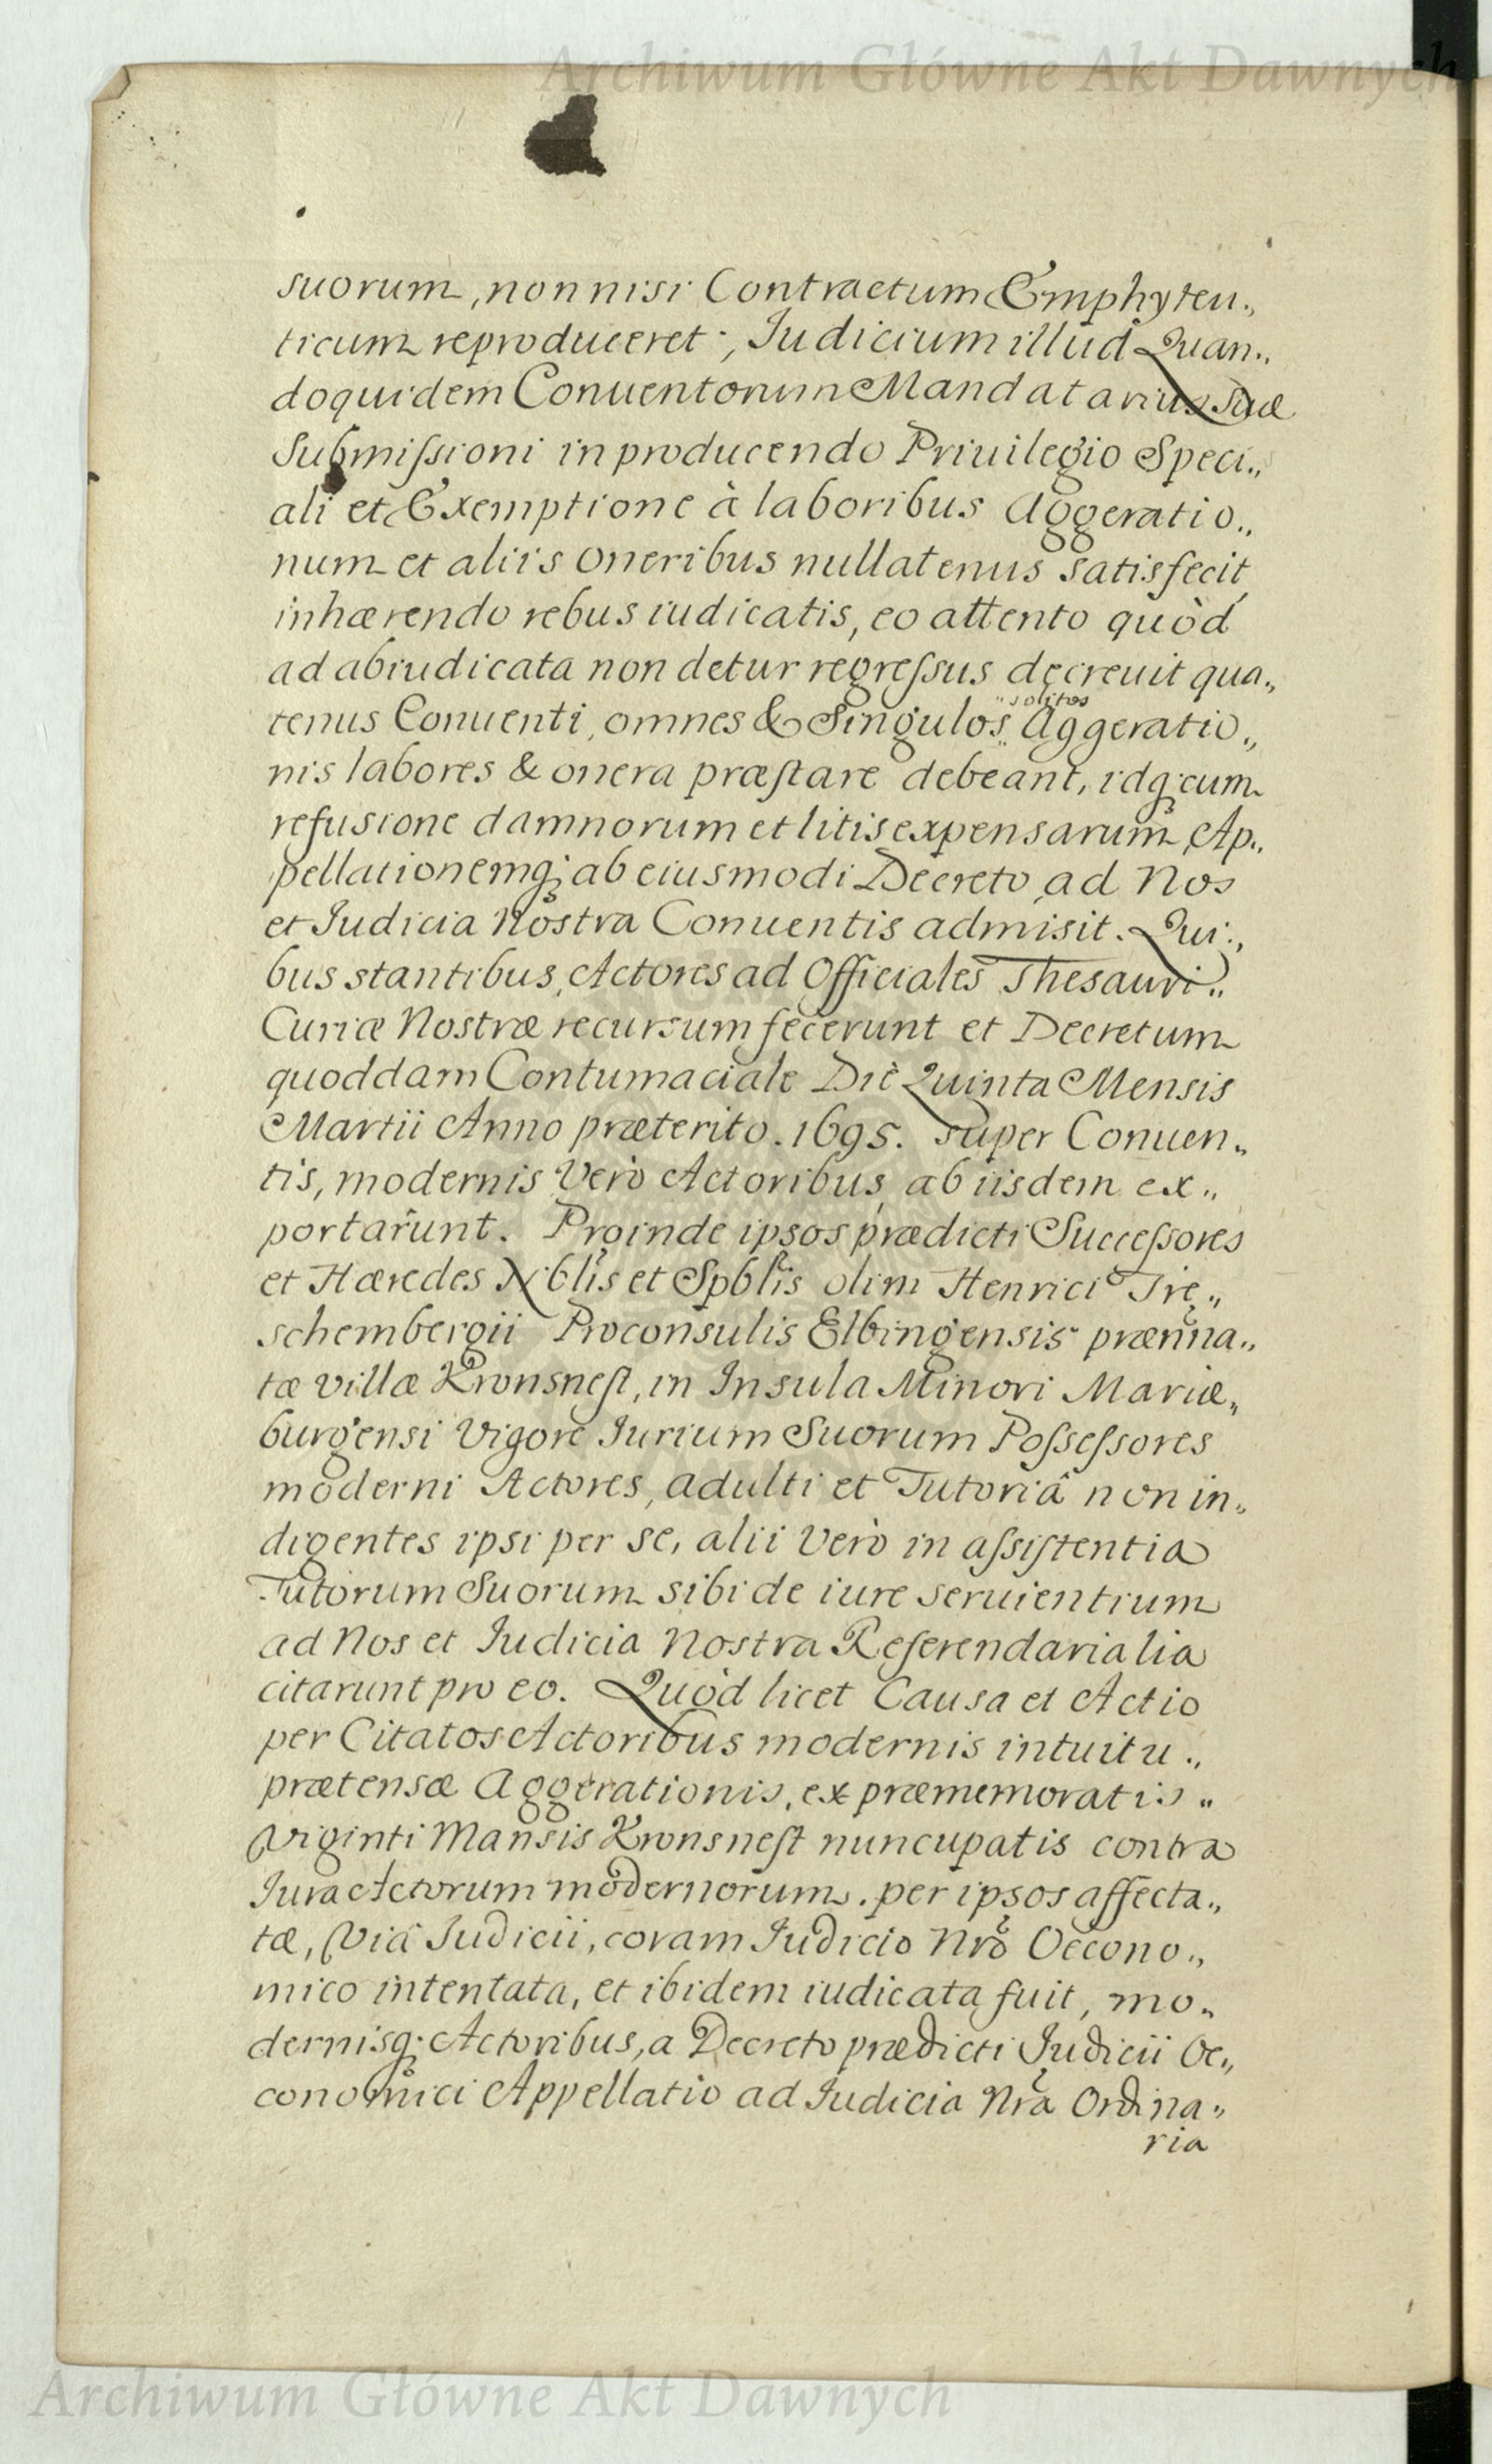 Archiwum Główne Akt Dawnych
suorum, non nisi Contractum Emphyteu„
ticum reproduceret; Iudicium illud Quan„
doquidem Conuentorum Mandatarius Suæ
Submiſsioni in producendo Priuilegio Speci„
ali et Exemptione à laboribus Aggeratio„
num et aliis oneribus nullatenus satisfecit,
inhærendo rebus iudicatis, eo attento quòd
ad abiudicata non detur regreſsus decreuit qua„
tenus Conuenti, omnes & Singulos solitos Aggeratio„
nis labores & onera præſtare debeant, idq; cum
refusione damnorum et litis expensarum, Ap„
pellationemq; ab eiusmodi Decreto ad Nos
et Iudicia Nostra Conuentis admisit. Qui„
bus stantibus, Actores ad Officiales Thesauri„
Curiæ Nostræ recursum fecerunt et Decretum
quoddam Contumaciale Die Quinta Mensis
Martii Anno præterito. 1695. super Conuen„
tis, modernis Verò Actoribus, ab iisdem ex„
portarunt. Proinde ipsos prædicti Succeſsores
et Hæredes Nblis et Spblis olim Henrici Tre„
schembergii Proconsulis Elbingensis prænna„
tæ villæ Kronsneſt, in Insula Minori Mariæ„
burgensi Vigore Iurium Suorum Poſseſsores
moderni Actores, adulti et Tutoriâ non in„
digentes ipsi per se, alii Verò in aſsiſtentia
Tutorum Suorum sibi de iure seruientium
ad Nos et Iudicia Nostra Referendarialia
citarunt pro eo. Quòd licet Causa et Actio
per Citatos Actoribus modernis intuitu„
prætensæ Aggerationis, ex præmemoratis„
Viginti Mansis Kronsneſt nuncupatis contra
Iura Actorum modernorum. per ipsos affecta„
tæ, Viâ Iudicii, coram Iudicio Nrõ Oecono„
mico intentata, et ibidem iudicata fuit, mo„
dernisq; Actoribus, a Decreto prædicti Iudicii Oe„
conomici Appellatio ad Iudicia Nra Ordina„
ria
Archiwum Główne Akt Dawnych